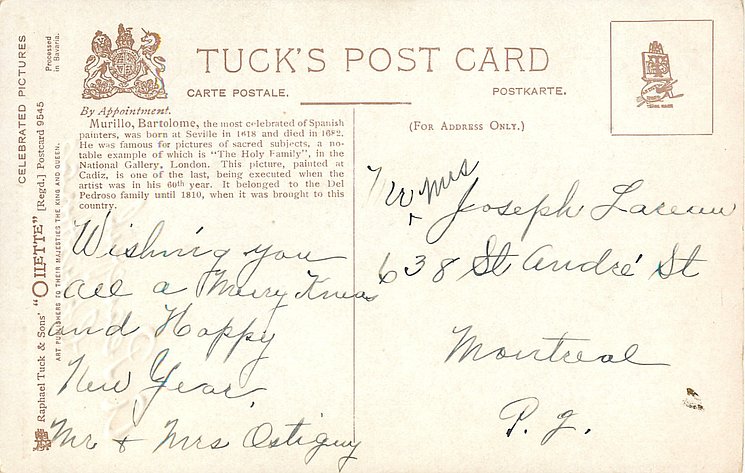 TUCK'S POST CARD
CARTE POSTALE.
POSTKARTE.
By Appointment.
Murillo, Bartolome, the most celebrated of Spanish
painters, was born at Seville in 1618 and died in 1682.
He was famous for pictures of sacred subjects, a no-
table example of which is "The Holy Family", in the
National Gallery, London. This picture, painted at
Cadiz, is one of the last, being executed when the
artist was in his 60th year. It belonged to the Del
Pedroso family until 1810, when it was brought to this
country.
Wishing you
all a Merry Xmas
and Happy
New Year,
Mr & Mrs Ostiguy
(For Address Only.)
Mr & Mrs
Joseph Lareau
638 St André St
Montreal
P. Q.
CELEBRATED PICTURES
Processed
in Bavaria.
Raphael Tuck & Sons' "OILETTE" [Regd.] Postcard 9545
ART PUBLISHERS TO THEIR MAJESTIES THE KING AND QUEEN.